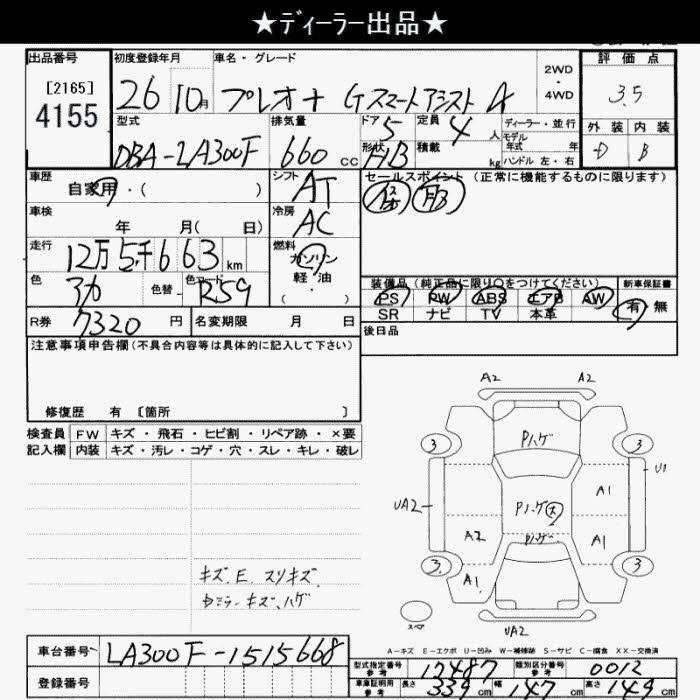 ★ディーラー出品★
出品番号 初度登録年月 車名・グレード 2WD・4WD 評価点
[2165]
4155
26 10月 プレオ+ Gスマートアシスト 3.5
型式 排気量 ドア 5 定員 4人 ディーラー・並行 外装 内装
モデル年式 年
DBA-LA300F 660cc 形状 HB 積載 kg ハンドル 左・右 D B
車歴 シフト AT セールスポイント (正常に機能するものに限ります)
自家用・( )
車検 冷房 AC
年 月( 日)
走行 燃料
12万5千663km ガソリン
軽・油
( )
色 色替 色コード R59
装備品 (純正品に限り○をつけてください) 新車保証書
PS PW ABS エアB AW 有 無
SR ナビ TV 本革
R券 7320円 名変期限 月 日 後日品
注意事項申告欄(不具合内容等は具体的に記入して下さい)
修復歴 有 [箇所 ]
検査員 FW キズ・飛石・ヒビ割・リペア跡・×要
記入欄 内装 キズ・汚レ・コゲ・穴・スレ・キレ・破レ
A2 A2
Pハゲ
3 3
U1
A1
UA2
Pハゲ 大
A2 Pハゲ A1
3 3
A1
スペア
UA2
キズ、E、スリキズ、
キズ、ハゲ
A-キズ E-エクボ U-凹み W-補修跡 S-サビ C-腐食 XX-交換済
車台番号 LA300F-1515668
型式指定番号 参考 17487 類別区分番号 参考 0012
登録番号
車庫証明用 参考 長さ 339cm 幅 147cm 高さ 149cm